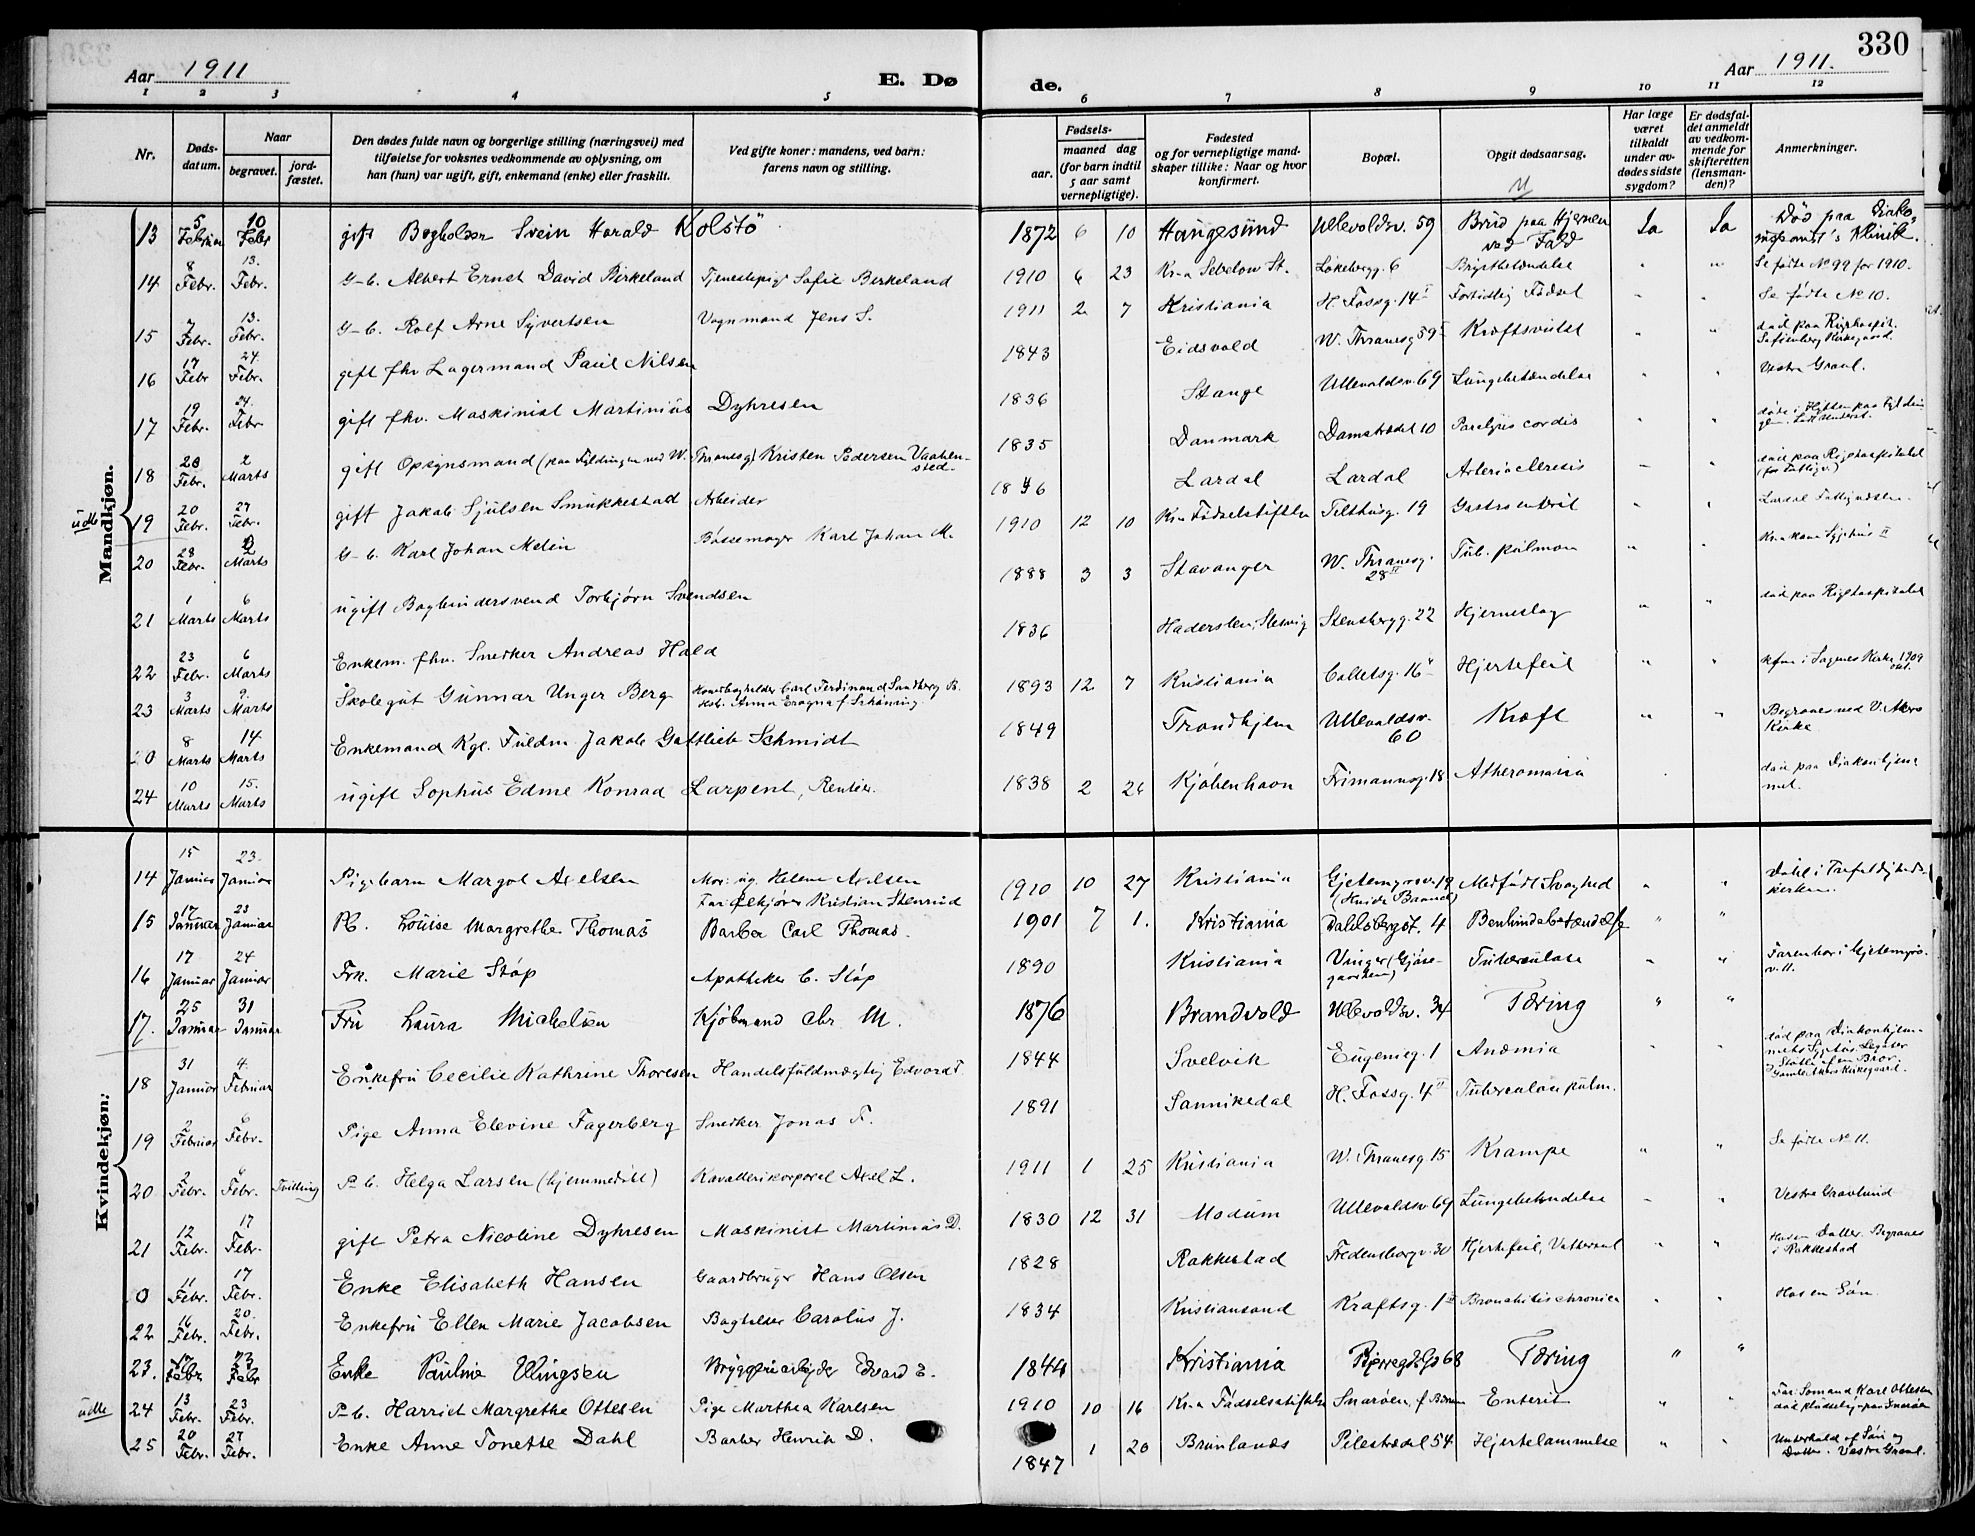 330
Aar 1911
E. Dø
de.
Aar 1911.
1 2 3 4 5 6 7 8 9 10 11 12
Nr.
Døds-
datum.
Naar
begravet.
jord-
fæstet.
Den dødes fulde navn og borgerlige stilling (næringsvei) med
tilføielse for voksnes vedkommende av oplysning, om
han (hun) var ugift, gift, enkemand (enke) eller fraskilt.
Ved gifte koner: mandens, ved barn:
farens navn og stilling.
Fødsels-
aar.
maaned dag
(for barn indtil
5 aar samt
vernepligtige).
Fødested
og for vernepligtige mand-
skaper tillike: Naar og hvor
konfirmert.
Bopæl.
Opgit dødsaarsag.
Har læge
været
tilkaldt
under av-
dødes sidste
sygdom?
Er dødsfal-
det anmeldt
av vedkom-
mende for
skifteretten
(lensman-
den)?
Anmerkninger.
Mandkjøn.
13 5 Februar 10 Febr gift Bogholder Svein Harald Kolstö 1872 6 10 Haugesund Ullevoldsv. 59 Brud paa Hjernen ved Fald Ja Ja Død paa
14 8 Febr. 13. Febr. G-b. Albert Ernst David Birkeland Tjenestepige Sofie Birkeland 1910 6 23 Løkebergg. 6 Brystbetændelse " " Se fødte No 99 for 1910.
15 7 Febr. 13. Febr. G-b. Rolf Arne Syvertsen Vognmand Jens S. 1911 2 7 Kristiania H. Fossg. 14 I Fortidlig Fødsel " " Se fødte No 10.
16 17 Febr 24. Febr. gift fhv Lagermand Paul Nilsen 1843 Eidsvold W. Thranesg 59 Kræftsvulst " " død paa Rigshospit. Sofienberg Kirkegaard.
17 19 Febr. 24. Febr gift fhv. Maskinist Martinius Dyhresen 1836 Stange Ullevaldsv. 69 Lungebetændelse " " Vestre Gravl.
18 Febr. 2 Marts gift Opsynsmand (paa Fyldningen ved W. Thranesg) Kristen Pedersen 1835 Danmark Damstrædet 10 Paralysis cordis " "
udle
19 20 Febr. 27 Febr. gift Jakob Sjulsen Smukkestad Arbeider 1846 Lardal Lardal " " død paa Rigshospitalet
20 28 Febr. 2 Marts G-b. Karl Johan Melin Bøssemager Karl Johan M. 1910 12 10 Kr.a Fødselsstiftelse Telthusg. 19 Gastroenterit " "
21 1 Marts 6 Marts ugift Bogbindersvend Torbjørn Svendsen 1888 3 3 Stavanger W. Thranesg. 28 II Tub. pulmon " "
22 23 Febr. 6 Marts Enkem. fhv. Snedker Andreas Hald 1836 Haderslev, Slesvig Stensbergg. 22 Hjerneslag " " død paa Rigshospitalet
23 3 Marts 9. Marts Skolegut Gunnar Unger Berg Hovedbogholder Carl Ferdinand Sandberg B. 1893 12 7 Kristiania Colletsg. 16 Hjertefeil " " kfm i Sagenes Kirke 1909 okt.
0 8 Marts 14 Marts Enkemand Kgl. Fuldm Jakob Gottlieb Schmidt 1849 Trondhjem Ullevaldsv. 60 Kræft " " Begraves ved V. Akers Kirke
24 10 Marts 15. Marts ugift Sophus Edme Konrad Larpent, Rentier. 1838 2 Kjøbenhavn Frimannsg. 18 død paa Diakonhjem met.
Kvindekjøn:
14 15 Januar 23. Januar Pigebarn Margot Axelsen Mor: ug. Helene Axelsen 1910 10 27 Kristiania Gjetemyrsv. 19 Medfødt Svaghed " "
15 17 Januar 23 Januar Pb. Louise Margrethe Thomas Barber Carl Thomas. 1901 7 1. Kristiania Dahlsbergst. 4 Benhindebetændelse " "
16 17 Januar 24 Januar Frk. Marie Støp Apotheker C. Støp 1890 Kristiania Vinger Tuberculose " " Faren bor i Gjetemyrs- v. 11.
17. 25 Januar 31 Januar Fru Laura Michelsen Kjøbmand Chr M. 1876 Brandvold Ullevoldsv. 34 Tæring " "
18 31 Januar 4. Februar Enkefru Cecilie Kathrine Thoresen Handelsfuldmægtig Edvard T. 1844 Svelvik Eugenieg. 1 Anæmia " "
19 2 Februar 6 Febr. Pige Anna Elevine Fagerberg Snedker Jonas F. 1891 Sannikedal H. Fossg. 4 II Tuberculose pulm.
20 2 Febr. 6 Febr. Tvilling P-b. Helga Larsen (hjemmedøbt) Kavallerikorporal Axel L. 1911 1 25 Kristiania W. Thranesg 15 Krampe " " Se fødte No 11.
21 12 Febr. 17 Febr. gift Petra Nicoline Dyhresen Maskinist Martinius D. 1830 12 31 Modum Ullevaldsv 69 Lungebetændelse " " Vestre Gravlund
0 11 Febr. 17 Febr. Enke Elisabeth Hansen Gaardbruger Hans Olsen 1828 Rakkestad Fredensborgv. 30 Hjertefeil, Vattersot " " Hos en Datter. Begraves i Rakkestad
22 16 Febr. 20. Febr. Enkefru Ellen Marie Jacobsen Bogholder Carolus J. 1834 Kristianssand Kraftsg. 1 Bronchitis chronica " " Hos en Søn.
23. 17 Febr 23 Febr Enke Pauline Ellingsen Bryggeriarbejder Edvard E. 1844 Kristiania Tæring " "
udle
24 13 Febr. 23 Febr. P-b. Harriet Margrethe Ottesen Pige Marthea Karlsen 1910 10 16 Kr.a Fødselsstiftelse Snarøen, Enterit " " Far: Sømand Karl Ottesen
25 20 Febr. 27 Febr. Enke Anne Tonette Dahl Barber Henrik D. 1847 1 20 Brunlanes Pilestrædet 54 Hjertelammelse " " Underhold af Søn og Datter. Vestre Gravl.